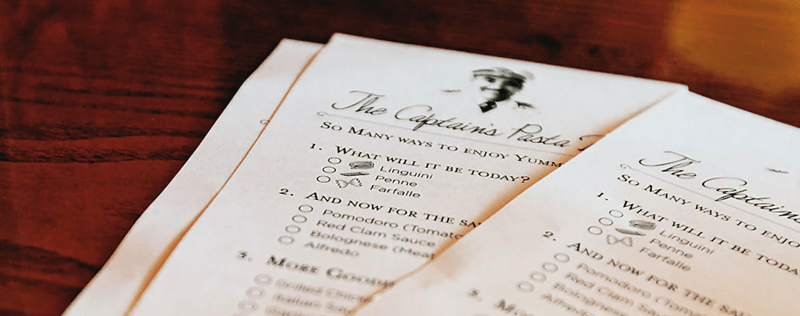 The Captain's Pasta
So Many ways to enjoy Yumm
1. What will it be today?
Linguini
Penne
Farfalle
2. And now for the sa
Pomodoro (Tomato
Red Clam Sauce
Bolognese (Meat
Alfredo
3. More Good
Grilled Chicke
Italian Sau
The Captain
So Many ways to enjo
1. What will it be toda
Linguini
Penne
Farfalle
2. And now for the s
Pomodoro (Tom
Red Clam Sauce
Bolognese
3. Mo